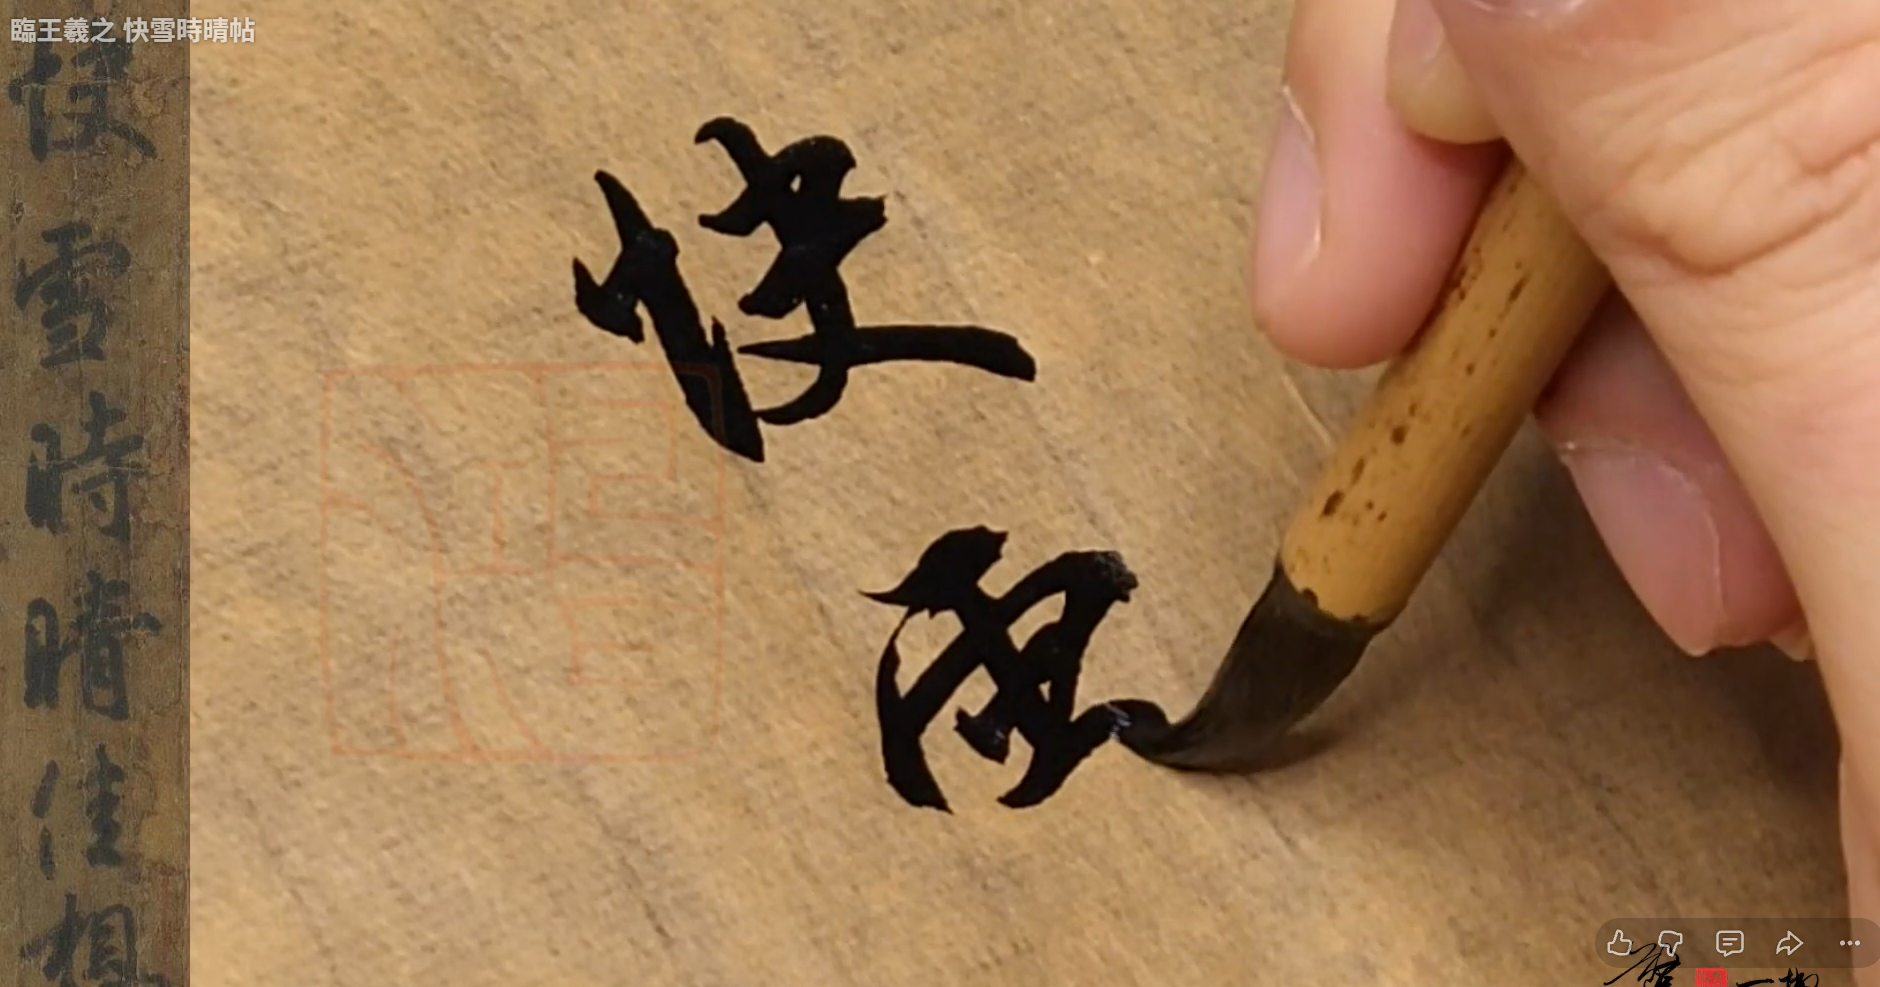 臨王羲之 快雪時晴帖
快雪時晴佳想
快